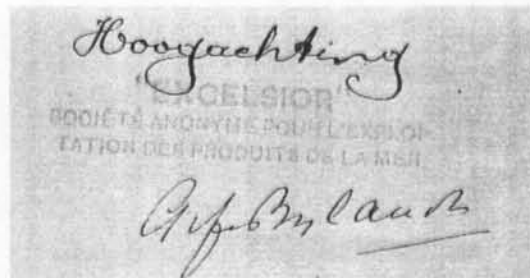 Hoogachting
"EXCELSIOR"
SOCIÉTÉ ANONYME POUR L'EXPLOI-
TATION DES PRODUITS DE LA MER